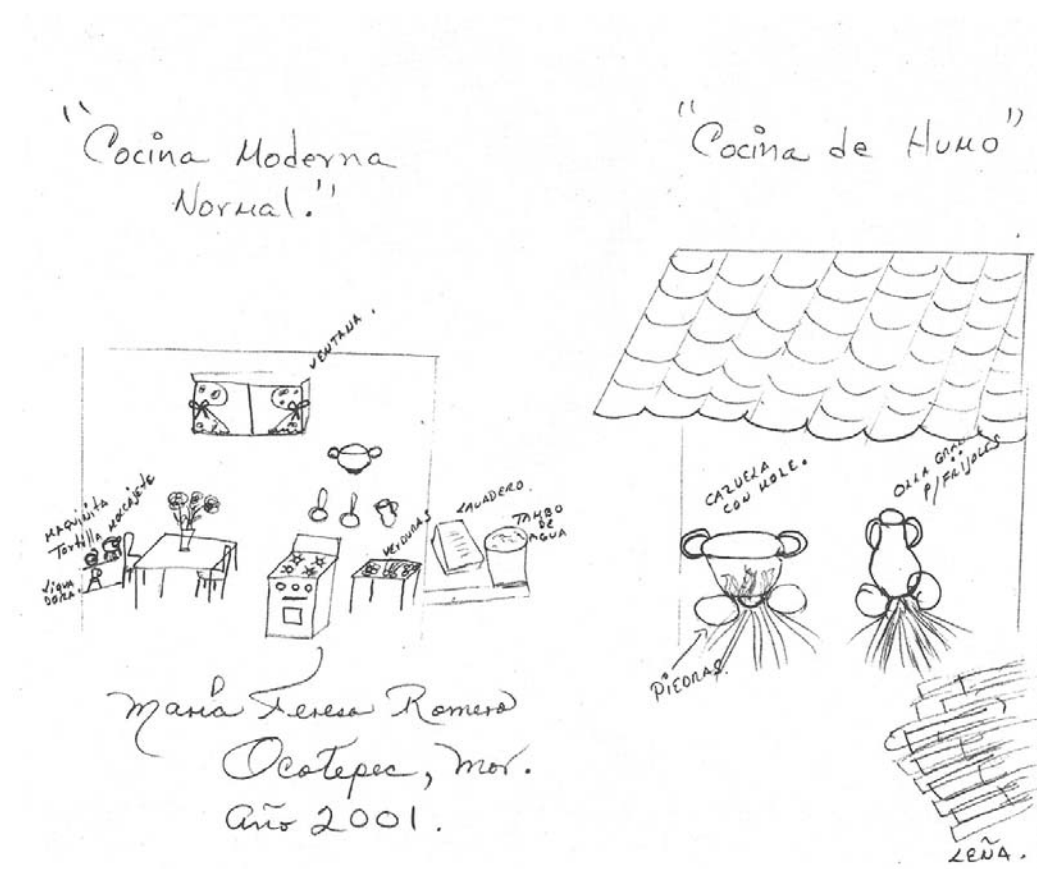 "Cocina Moderna
Normal."
"Cocina de Humo"
VENTANA.
MAQUINITA
Tortilla MOLCAJETE
LIQUA
DORA.
VERDURAS
LAVADERO.
TAMBO
DE
AGUA
CAZUELA
CON MOLE.
OLLA GRANDE
P/FRIJOLES
PIEDRAS.
LEÑA.
María Teresa Romero
Ocotepec, Mor.
Año 2001.